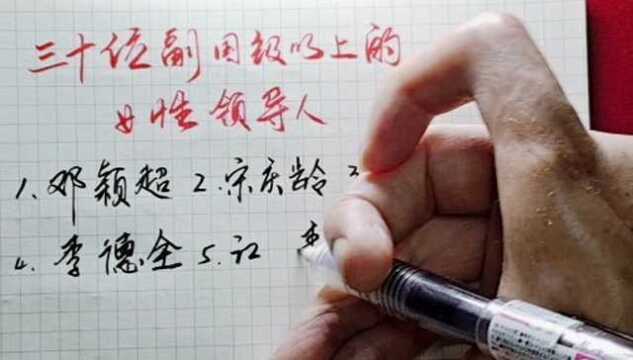 三十位副国级以上的
女性领导人
1.邓颖超 2.宋庆龄
4.李德全 5.江